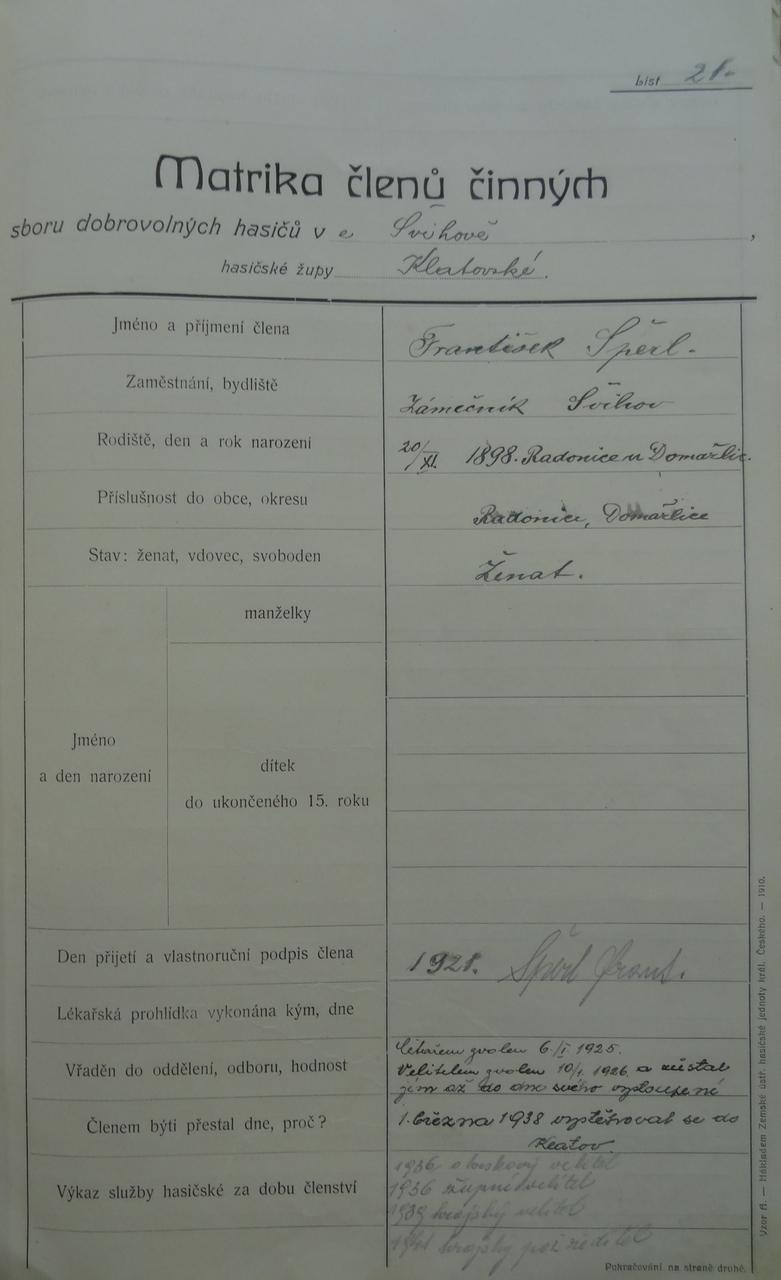 List 21.
Matrika členů činných
sboru dobrovolných hasičů v e Švihově ,
hasičské župy Klatovské.
Jméno a příjmení člena František Šperl.
Zaměstnání, bydliště Zámečník Švihov
Rodiště, den a rok narození 20/XI. 1898. Radonice u Domažlic.
Příslušnost do obce, okresu Radonice, Domažlice
Stav: ženat, vdovec, svoboden Ženat.
manželky
Jméno
a den narození
dítek
do ukončeného 15. roku
Den přijetí a vlastnoruční podpis člena 1921. Šperl Frant.
Lékařská prohlídka vykonána kým, dne
zvolen 6./I 1925.
Vřaděn do oddělení, odboru, hodnost Velitelem zvolen 10/I. 1926 a zůstal
jím až do dne svého vystoupení
Členem býti přestal dne, proč? 1. března 1938 vystěhoval se do
Klatov.
1936 okrskový velitel
Výkaz služby hasičské za dobu členství 1936 župní velitel
1939 krajský velitel
1941 krajský pož. ředitel
Pokračování na straně druhé.
Vzor A. — Nákladem Zemské ústř. hasičské jednoty král. Českého. — 1910.